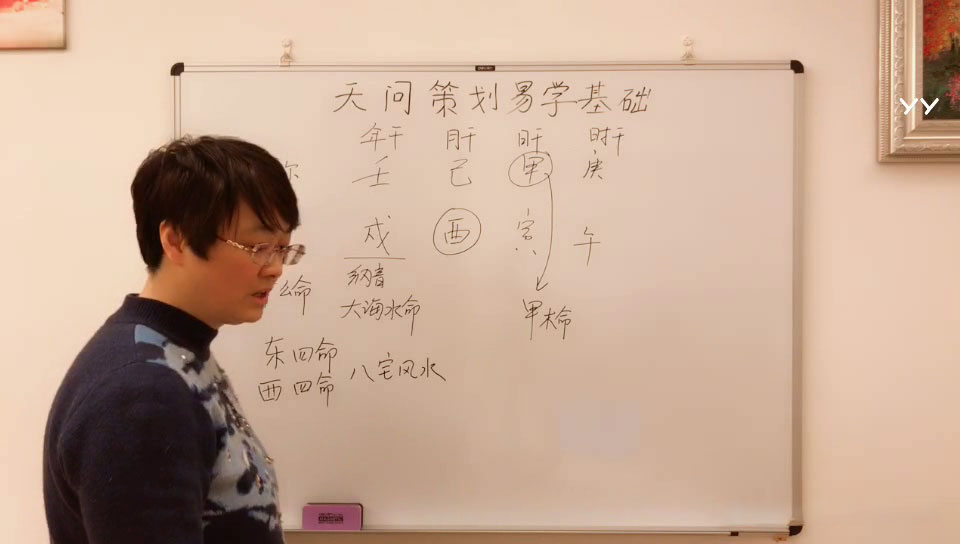 天问策划易学基础
YY
年干 月干 日干 时干
壬 己 甲 庚
戌 酉 寅 午
纳音
么命 大海水命 甲木命
东四命
西四命 八宅风水